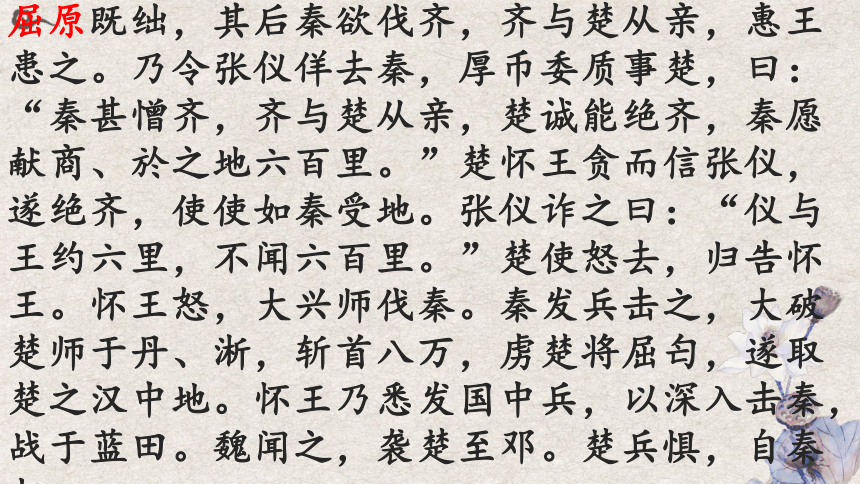 屈原既绌，其后秦欲伐齐，齐与楚从亲，惠王
患之。乃令张仪佯去秦，厚币委质事楚，曰：
“秦甚憎齐，齐与楚从亲，楚诚能绝齐，秦愿
献商、於之地六百里。”楚怀王贪而信张仪，
遂绝齐，使使如秦受地。张仪诈之曰：“仪与
王约六里，不闻六百里。”楚使怒去，归告怀
王。怀王怒，大兴师伐秦。秦发兵击之，大破
楚师于丹、淅，斩首八万，虏楚将屈匄，遂取
楚之汉中地。怀王乃悉发国中兵，以深入击秦，
战于蓝田。魏闻之，袭楚至邓。楚兵惧，自秦